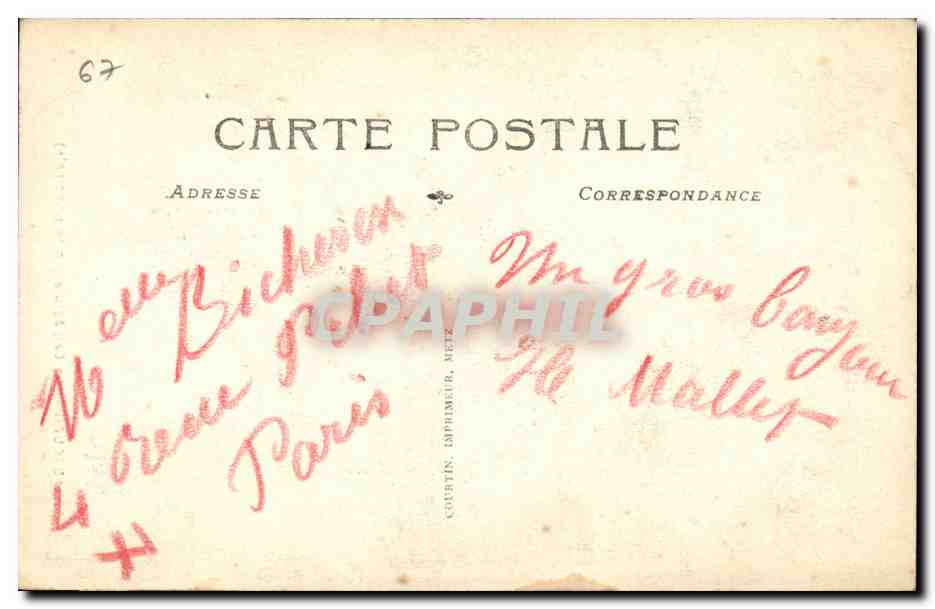 67
CARTE POSTALE
ADRESSE
CORRESPONDANCE
Bicheron
4
Paris
Un gros bonjour
Mallet
COURTIN, IMPRIMEUR, METZ
CPAPHIL